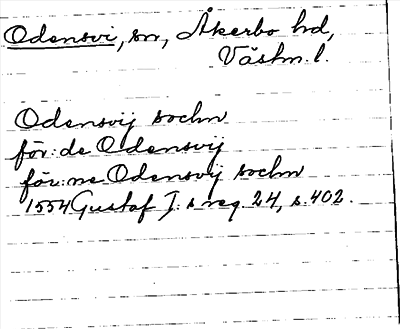 Odensvi, sn, Åkerbo hd,
Västm. l.
Odensvij sochn
för: de Odensvij
för: ne Odensvij sochn
1554 Gustaf I:s reg. 24, s. 402.